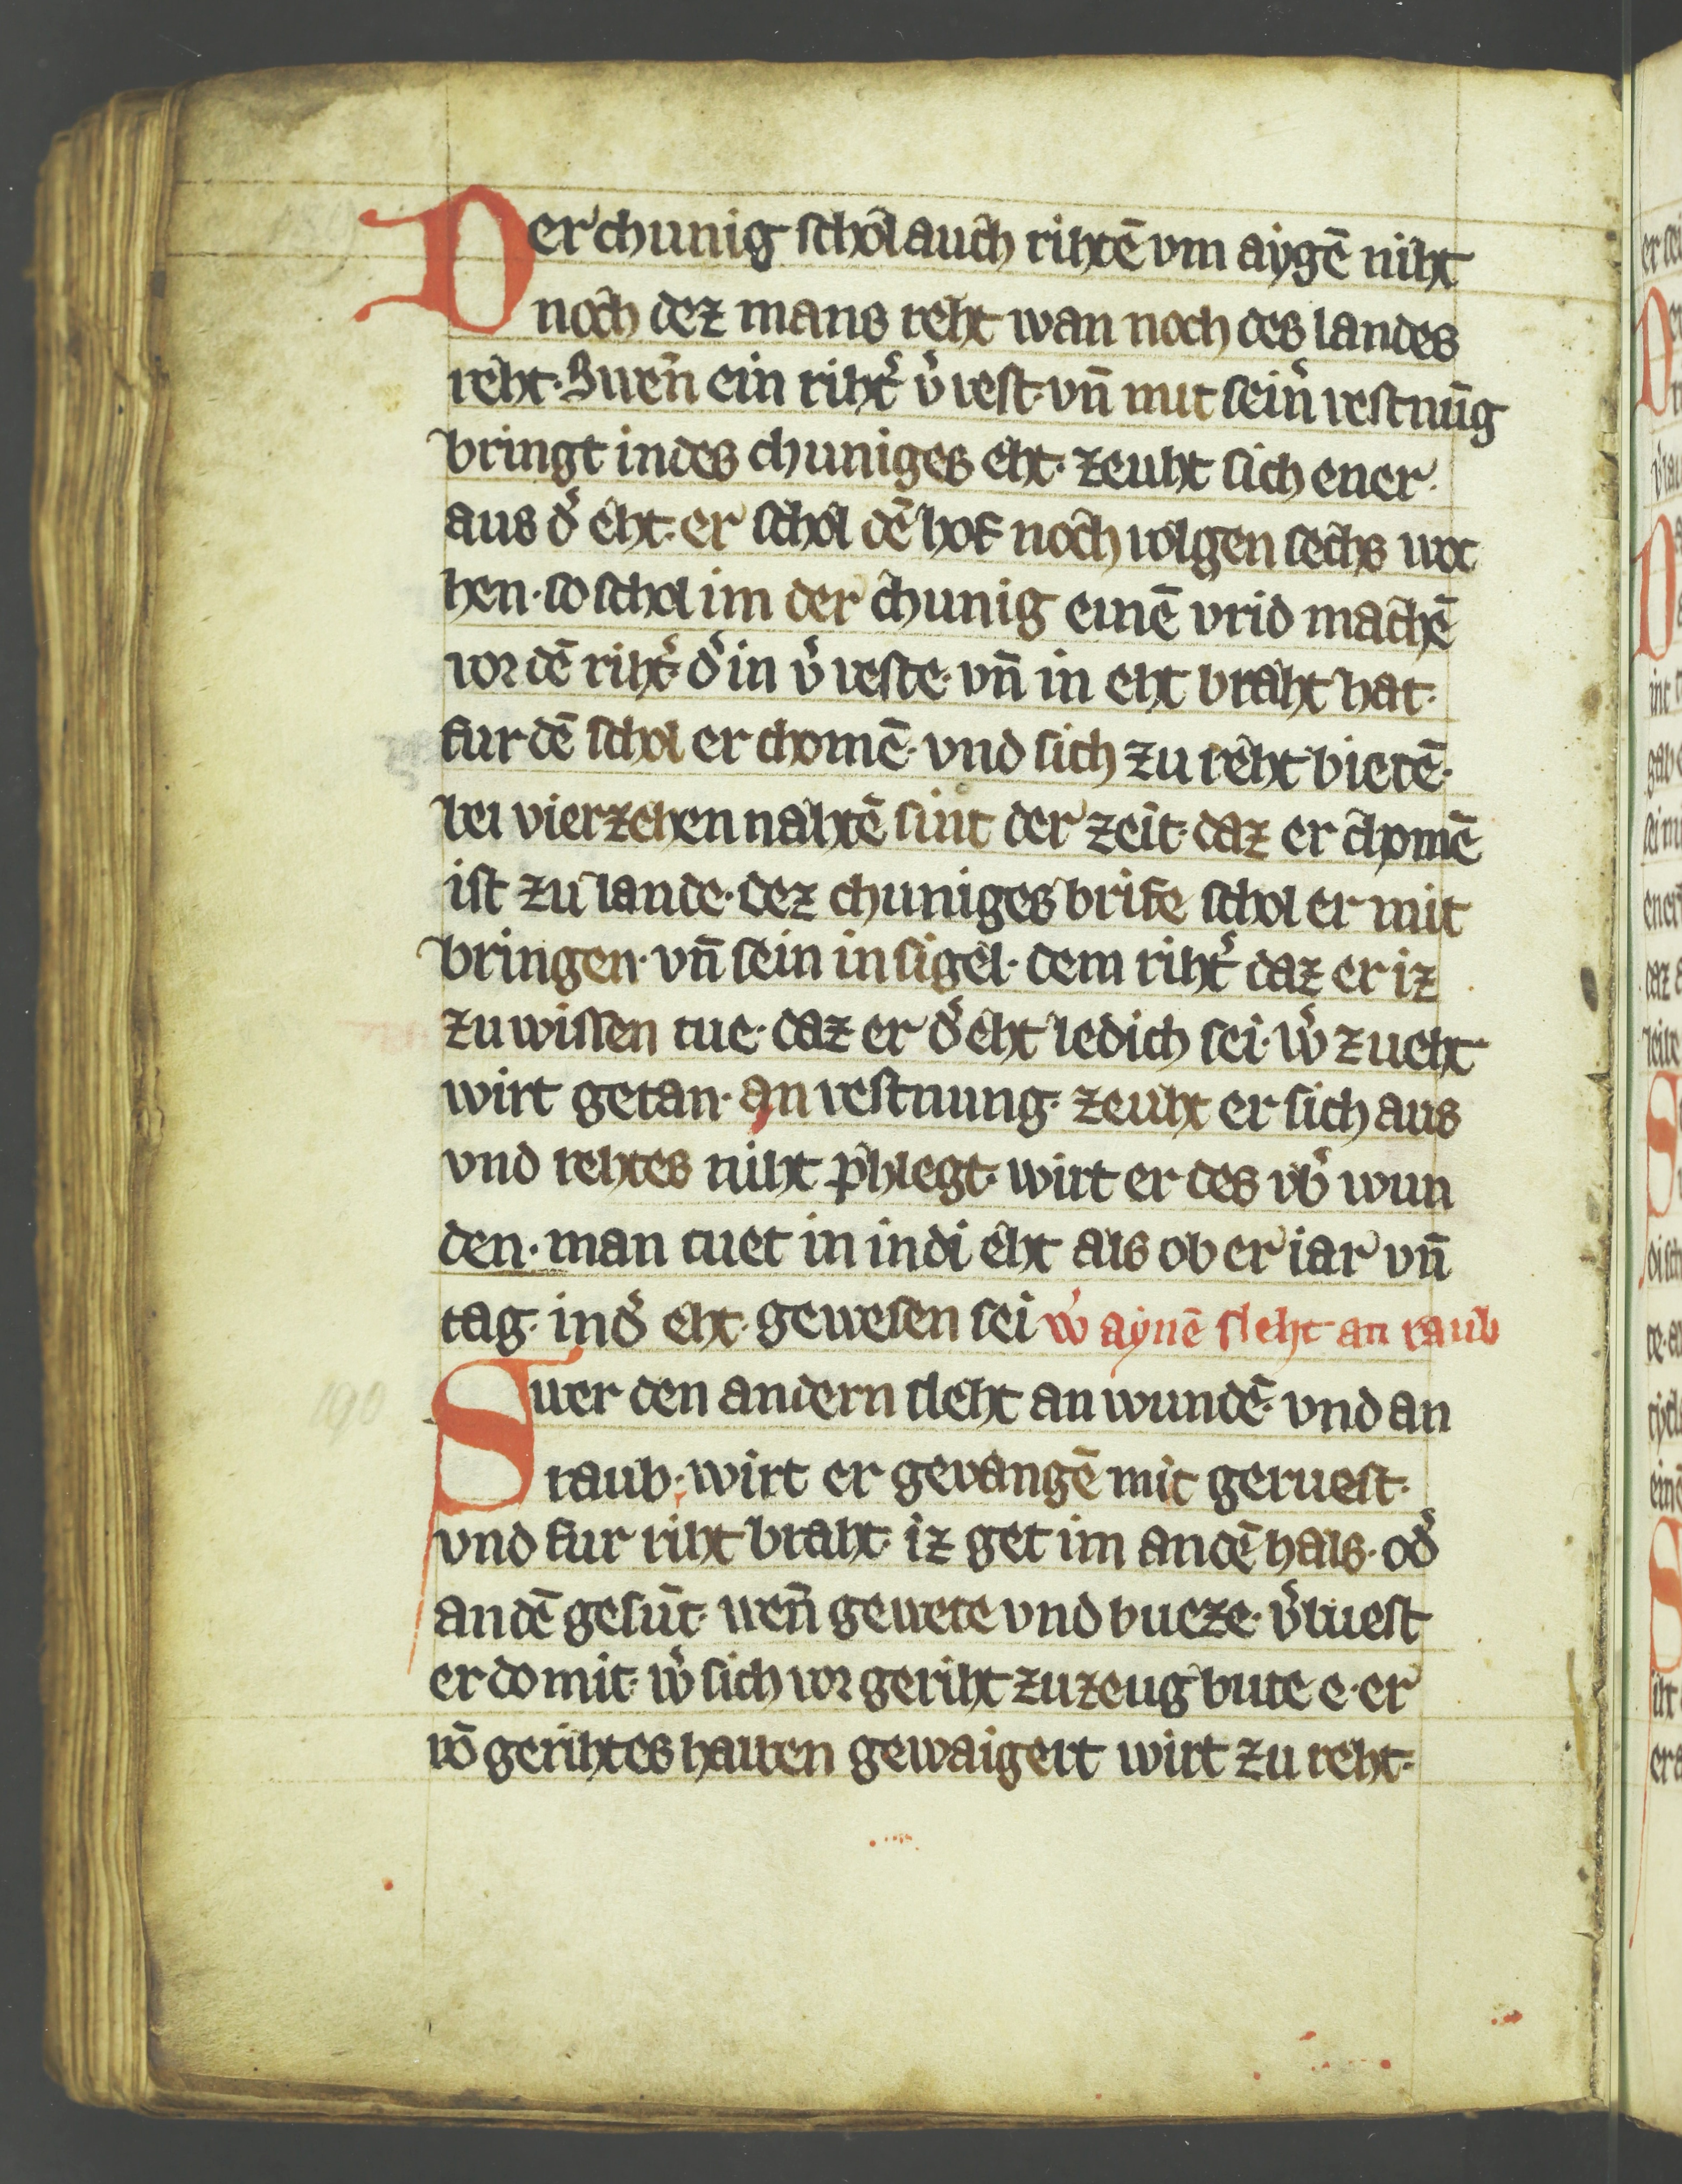 Der chunig schol auch rihtē vm aygē niht
noch dez mans reht wan noch des landes
reht· Swen̄ ein riht͛ v͛ vest· vn̄ mit sein͛ vestnūg
bringt in des chuniges eht· zeuht sich ener·
aus d͛ eht· er schol dē hof noch volgen sechs woc
hen· so schol im der chunig einē vrid machē
vor dē riht͛· d͛ in v͛ veste· vn̄ in eht braht hat·
fur dē schol er chomē· vnd sich zu reht bietē·
bei vierzehen nahtē sint der zeit· daz er chomē
ist zu lande· dez chuniges brife schol er mit
bringen· vn̄ sein in sigel· dem riht͛ daz er iz
zu wissen tue· daz er d͛ eht ledich sei· w͛ zu eht
wirt getan· an vestnung· zeuht er sich aus
vnd rehtes niht phlegt· wirt er des vb͛ wun
den· man tuet in in di eht als ob er iar vn̄
tag· in d͛ eht· gewesen sei w͛ aynē sleht an raub
Swer den andern sleht an wundē· vnd an
raub· wirt er gevangē mit geruest·
vnd fur riht braht· iz get im an dē hals· od͛
an dē gesūt· wen̄ gewete vnd bueze· v͛luest
er do mit· w͛ sich vor geriht zu zeug bute e· er
vō gerihtes halben gewaigert wirt zu reht·
190